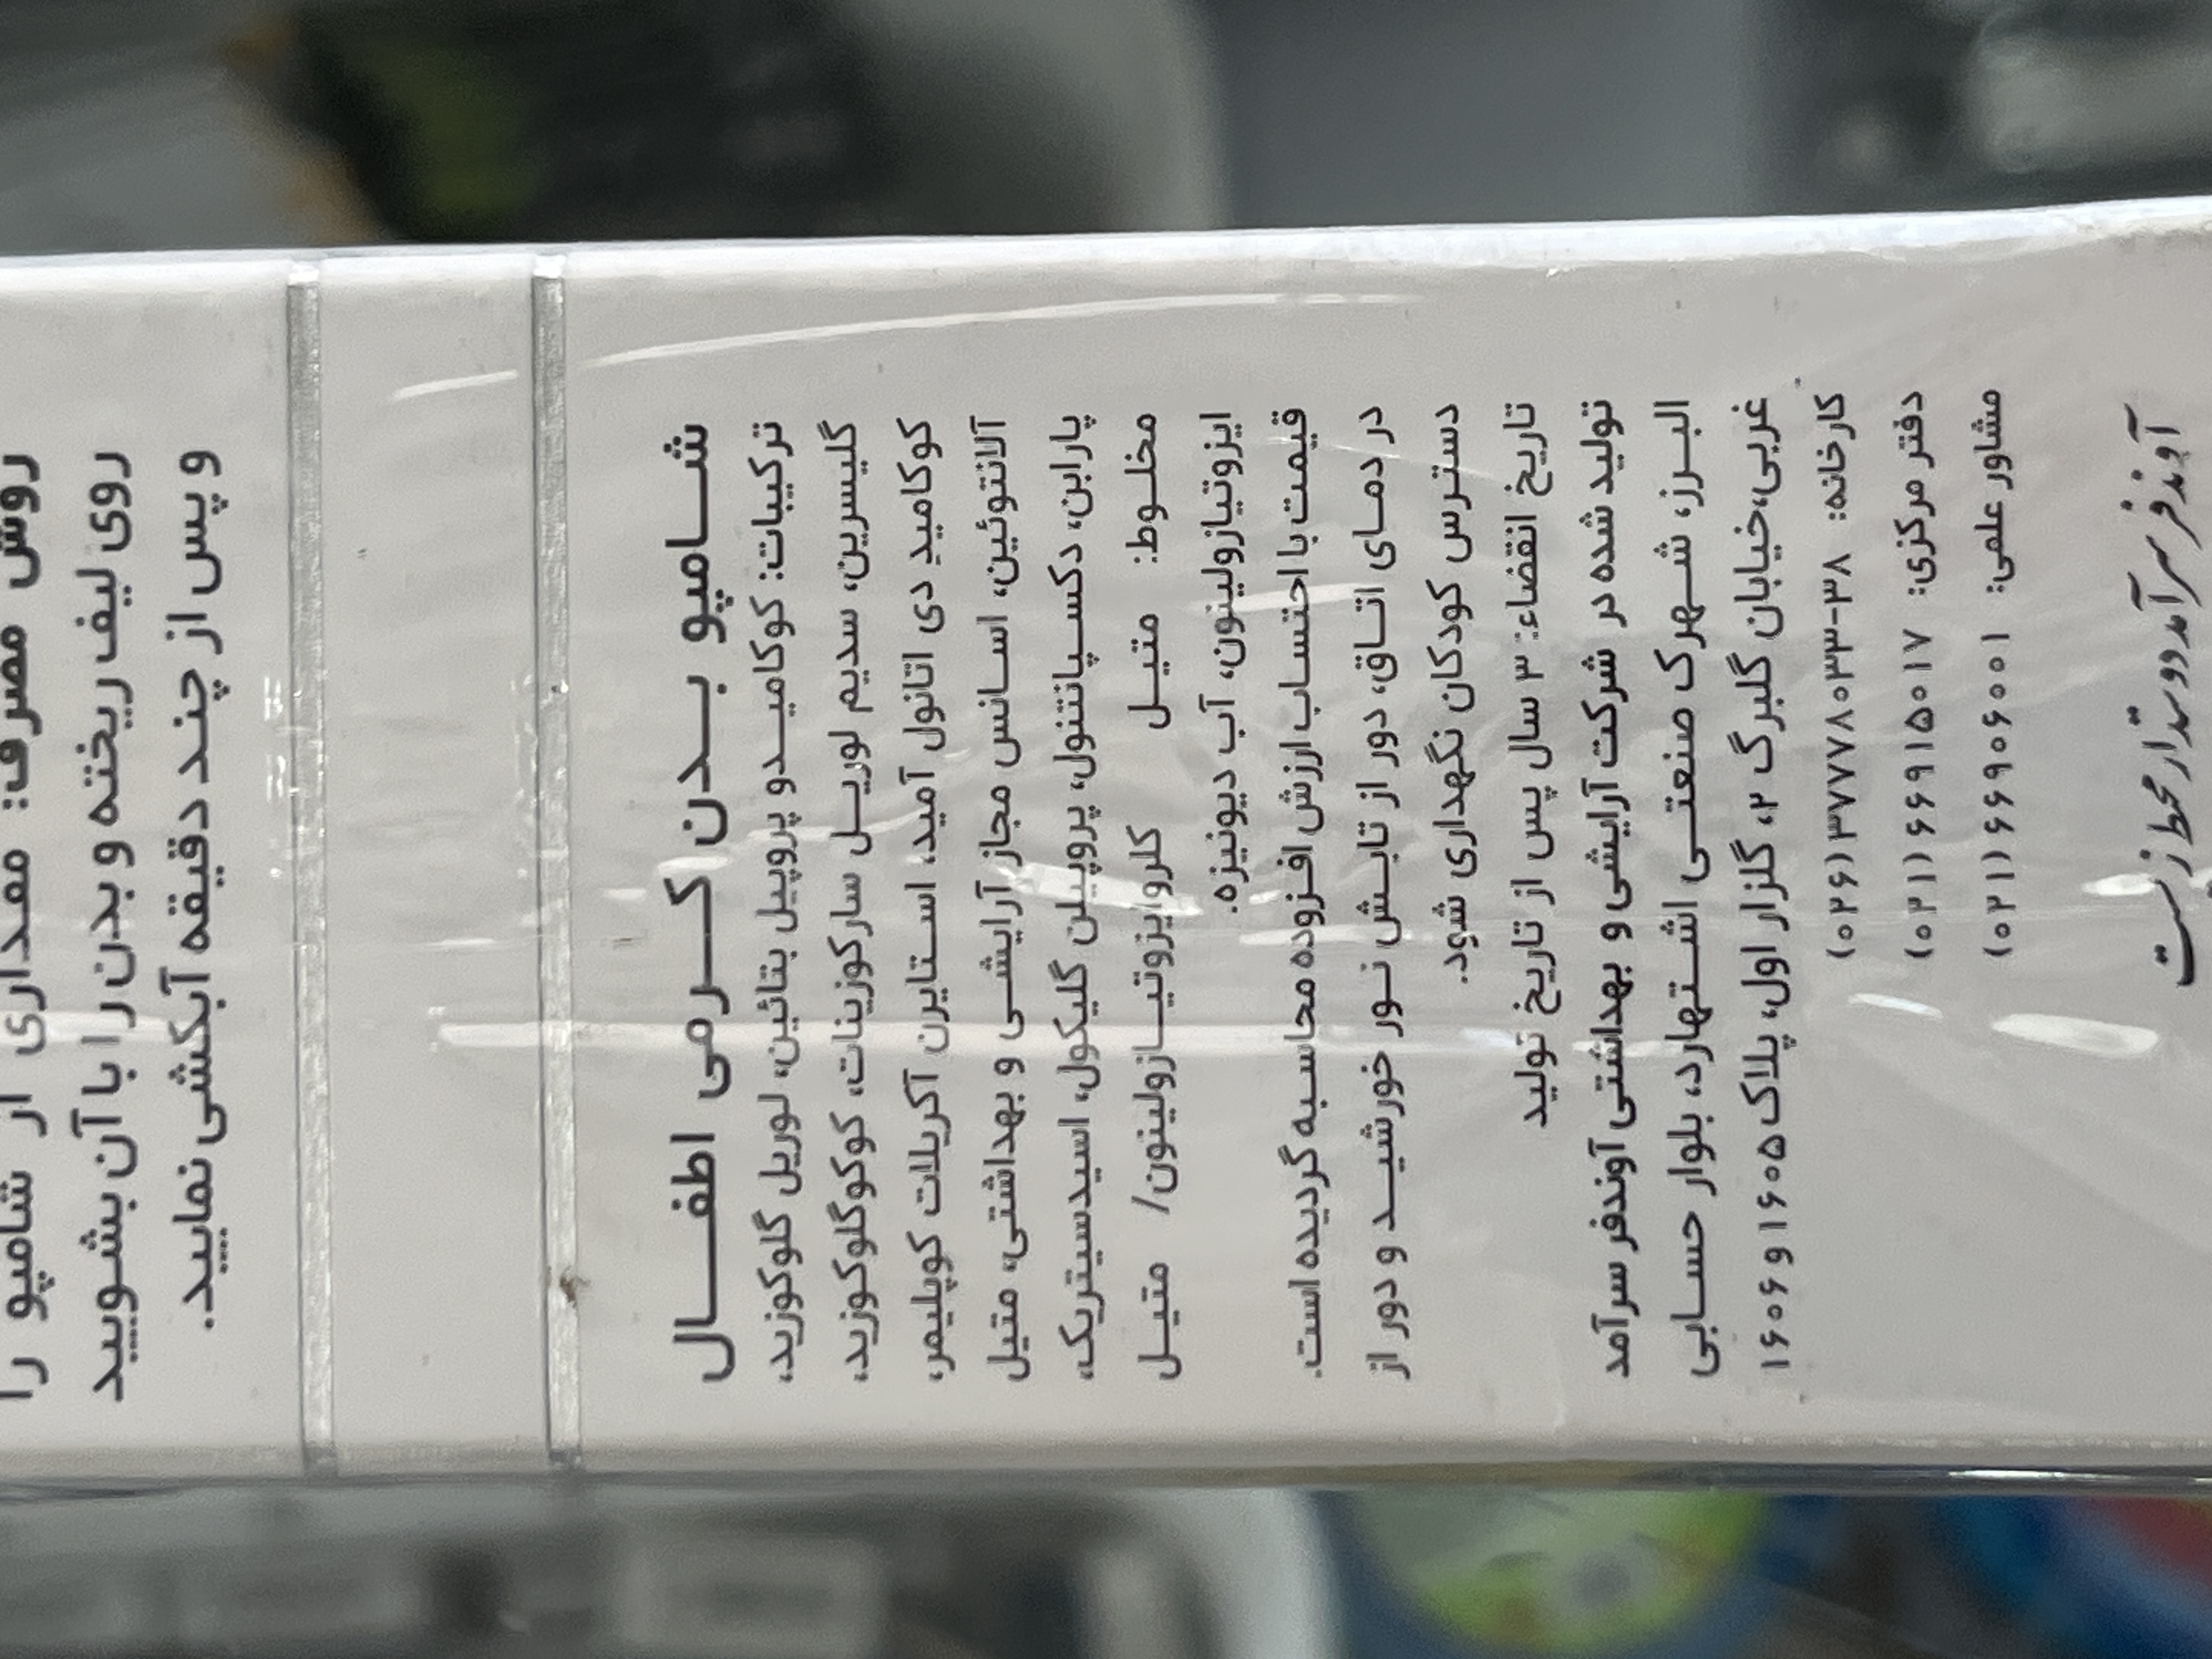 روش مصرف: مقداری از شامپو را
روی لیف ریخته و بدن را با آن بشویید
و پس از چند دقیقه آبکشی نمایید.
شامپو بدن کرمی اطفال
ترکیبات: کوکامیدو پروپیل بتائین، لوریل گلوکوزید،
گلیسرین، سدیم لوریل سارکوزینات، کوکوگلوکوزید،
کوکامید دی اتانول آمید، استایرن آکریلات کوپلیمر،
آلانتوئین، اسانس مجاز آرایشی و بهداشتی، متیل
پارابن، دکسپانتنول، پروپیلن گلیکول، اسیدسیتریک،
مخلوط: متیل کلروایزوتیازولینون/ متیل
ایزوتیازولینون، آب دیونیزه.
قیمت با احتساب ارزش افزوده محاسبه گردیده است.
در دمای اتاق، دور از تابش نور خورشید و دور از
دسترس کودکان نگهداری شود.
تاریخ انقضاء: ۳ سال پس از تاریخ تولید
تولید شده در شرکت آرایشی و بهداشتی آوندفر سرآمد
البرز، شهرک صنعتی اشتهارد، بلوار حسابی
غربی، خیابان گلبرگ ۲، گلزار اول، پلاک ۱۶۰۵ و ۱۶۰۶
کارخانه: ۳۸-۳۷۷۷۸۰۳۳ (۰۲۶)
دفتر مرکزی: ۶۶۹۱۵۰۱۷ (۰۲۱)
مشاور علمی: ۶۶۹۰۶۰۰۱ (۰۲۱)
آوندفر سرآمد دوستدار محیط زیست